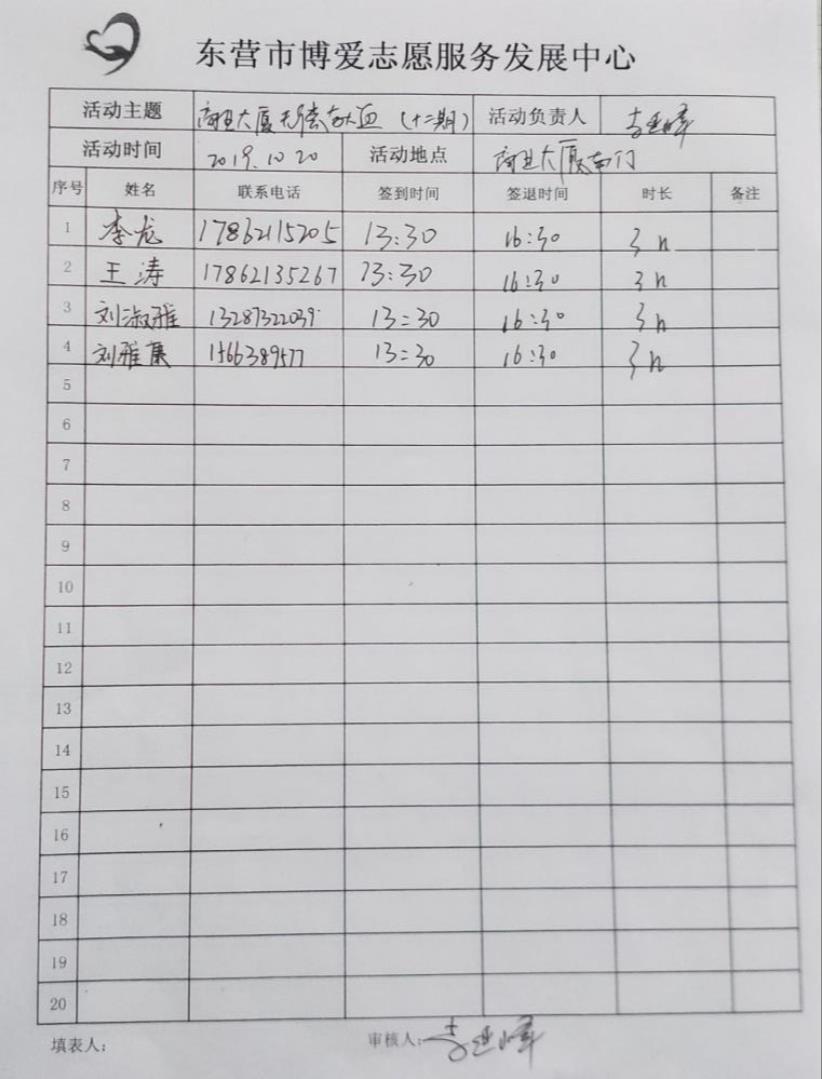 东营市博爱志愿服务发展中心
活动主题 商业大厦无偿献血（十二期） 活动负责人
活动时间 2019.10.20 活动地点 商业大厦南门
序号 姓名 联系电话 签到时间 签退时间 时长 备注
1 李龙 17862115205 13:30 16:30 3h
2 王涛 17862135267 13:30 16:30 3h
3 刘淑雅 13287322039 13:30 16:30 3h
4 刘雅 1566389577 13:30 16:30 3h
5
6
7
8
9
10
11
12
13
14
15
16
17
18
19
20
填表人： 审核人：